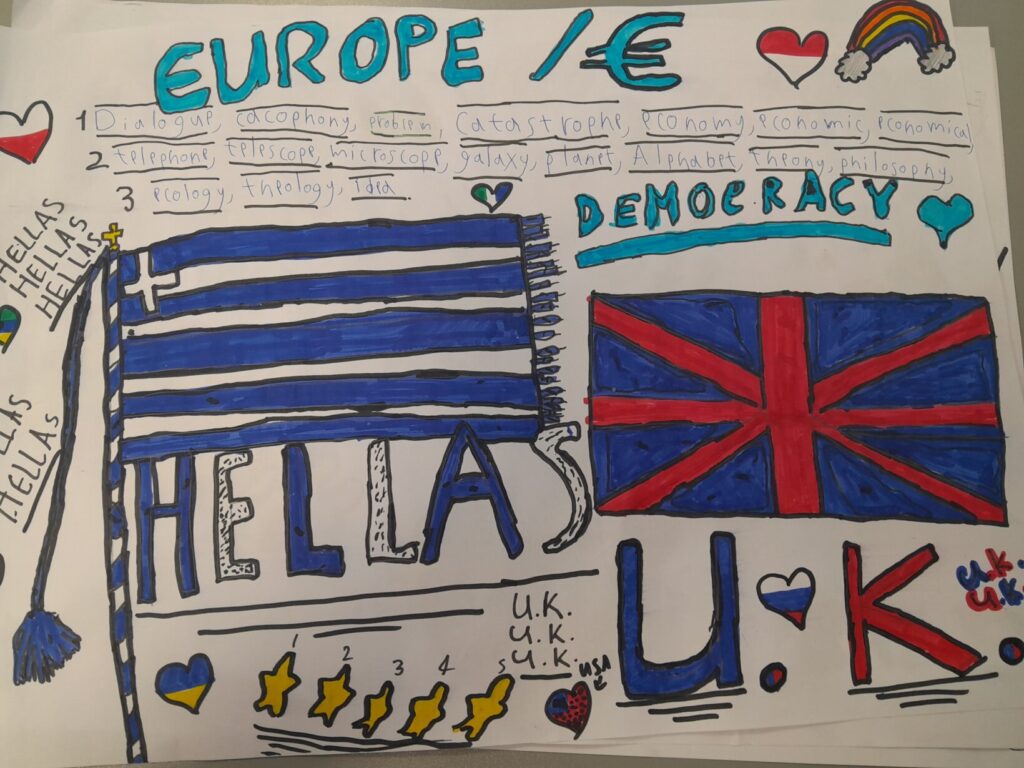 EUROPE / €
1 Dialogue, cacophony, problem, catastrophe, economy, economic, economical,
2 telephone, telescope, microscope, galaxy, planet, Alphabet, theony, philosophy,
3 ecology, theology, Idea.
DEMOCRACY
HELLAS
HELLAS
HELLAS
HELLAS
HELLAS
U.K.
U.K.
U.K.
U.K.
U.K.
U.K.
1 2 3 4 5
USA